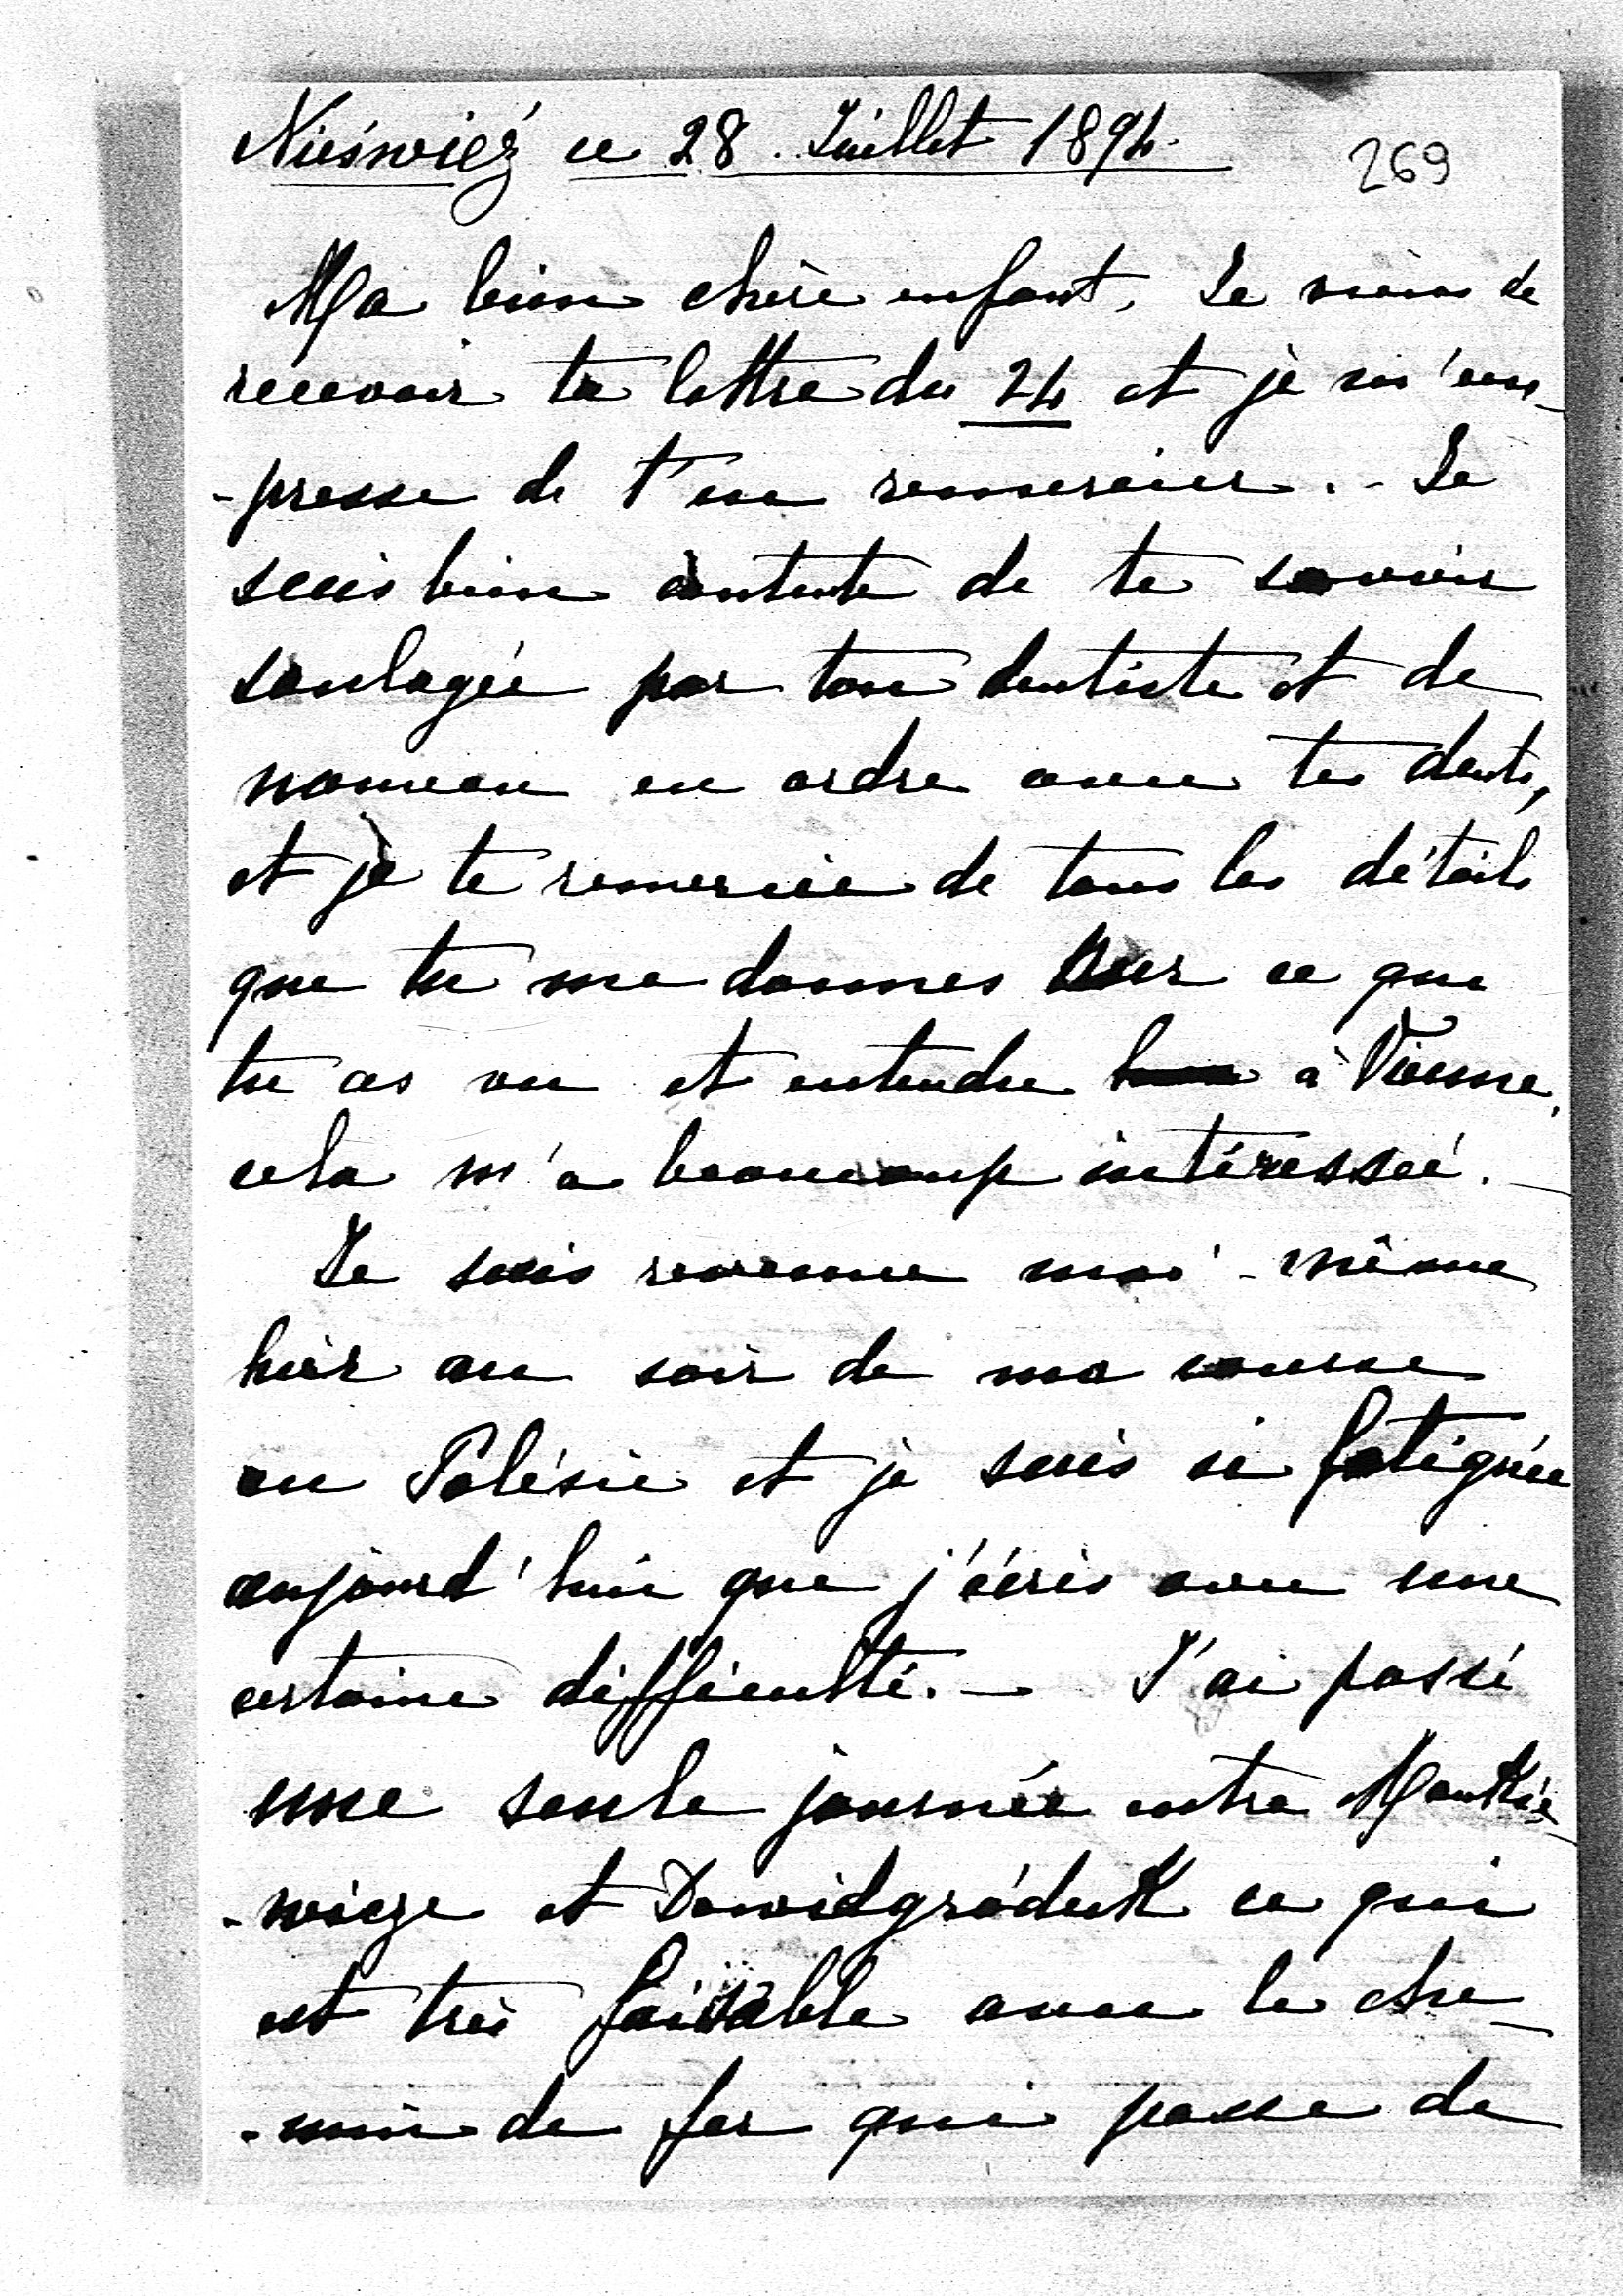 Nieśwież ce 28. Juillet 1894.
269
Ma bien chère enfant, Je viens de
recevoir ta lettre du 24 et je m'em-
-presse de t'en remercier. - Je
suis bien contente de te savoir
soulagée par ton dentiste et de
nouveau en ordre avec tes dents,
et je te remercie de tous les détails
que tu me donnes sur ce que
tu as vu et entendu à Vienne,
cela m'a beaucoup intéressée.
Je suis revenue moi-même
hier au soir de ma course
en Polésie et je suis si fatiguée
aujourd'hui que j'écris avec une
certaine difficulté. - J'ai passé
une seule journée entre Mankie-
-wicze et Dawidgródek ce qui
est très faisable avec le che-
-min de fer qui passe de